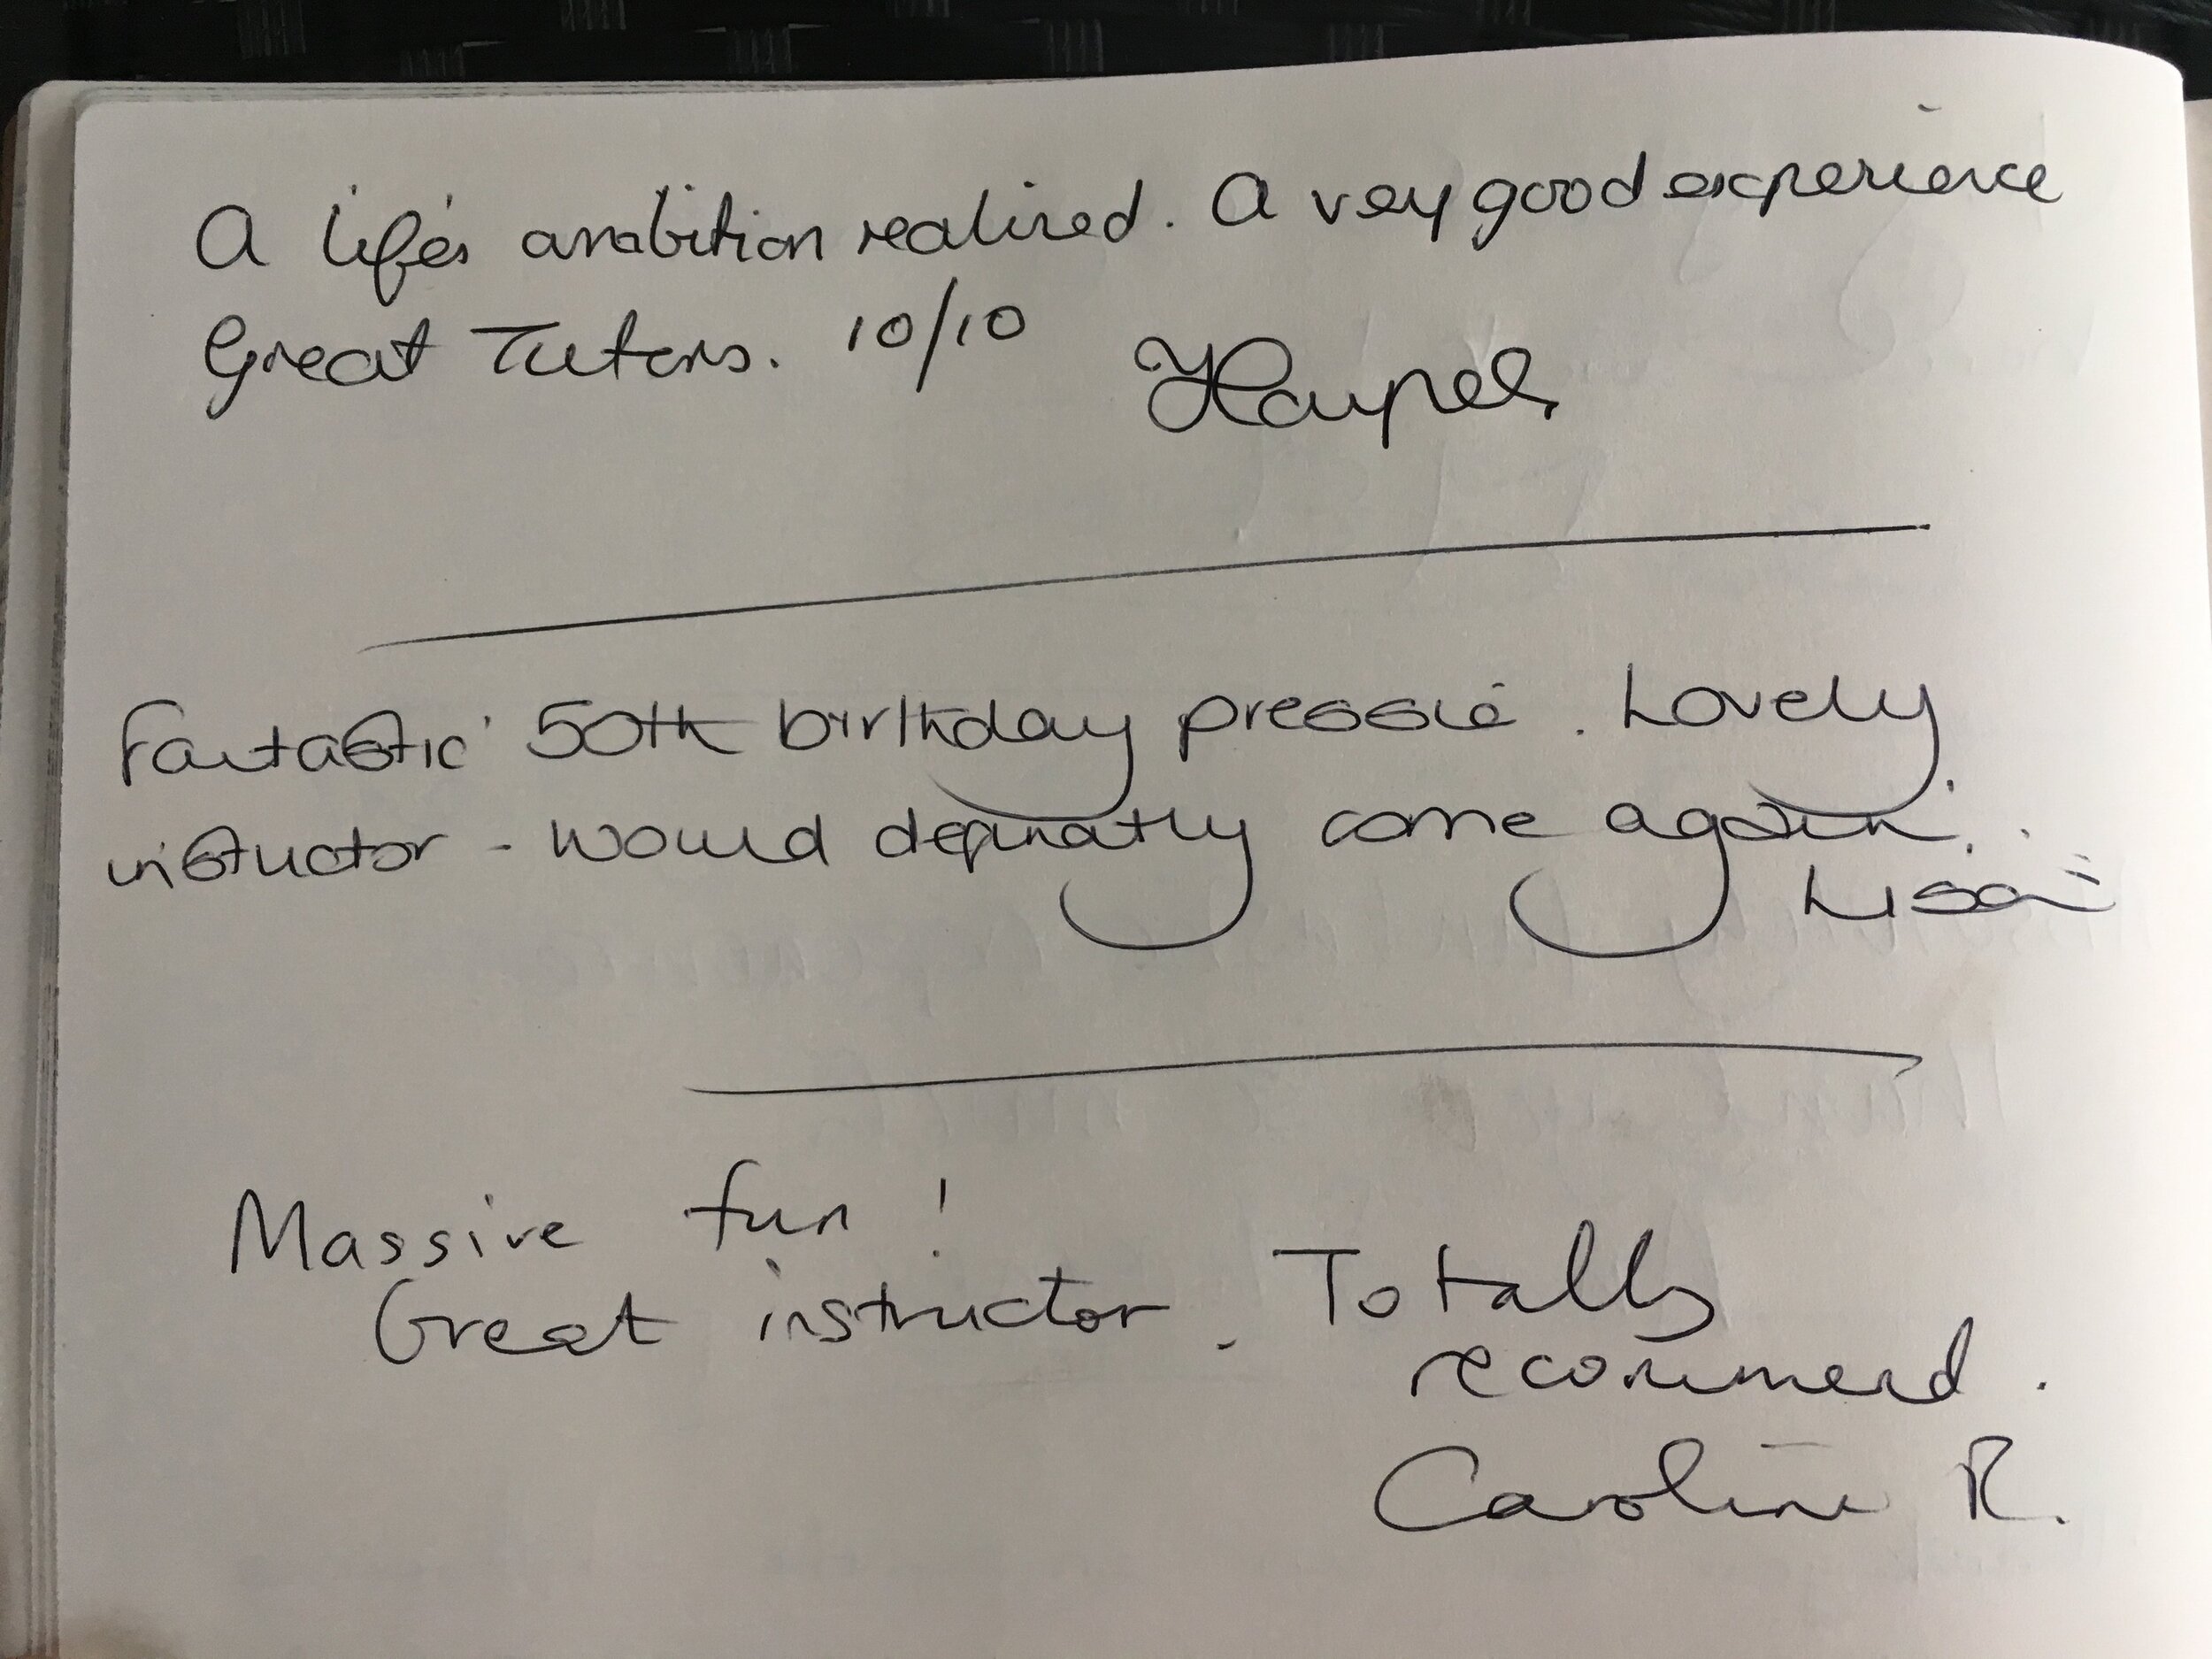 A life's ambition realised. A very good experience
Great Tutors. 10/10
Fantastic 50th birthday pressie. Lovely
instuctor - would definatly come again.
Lisa
Massive fun!
Great instructor. Totally
recommend.
Caroline R.